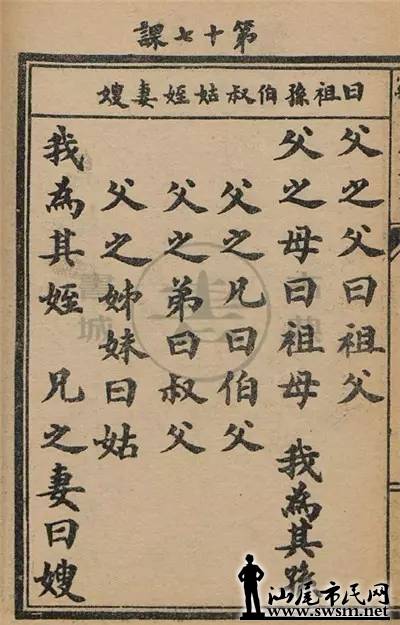 第十七課
曰祖孫伯叔姑姪妻嫂
父之父曰祖父
父之母曰祖母 我為其孫
父之兄曰伯父
父之弟曰叔父
父之姊妹曰姑
我為其姪 兄之妻曰嫂
書城
汕尾市民网
www.swsm.net